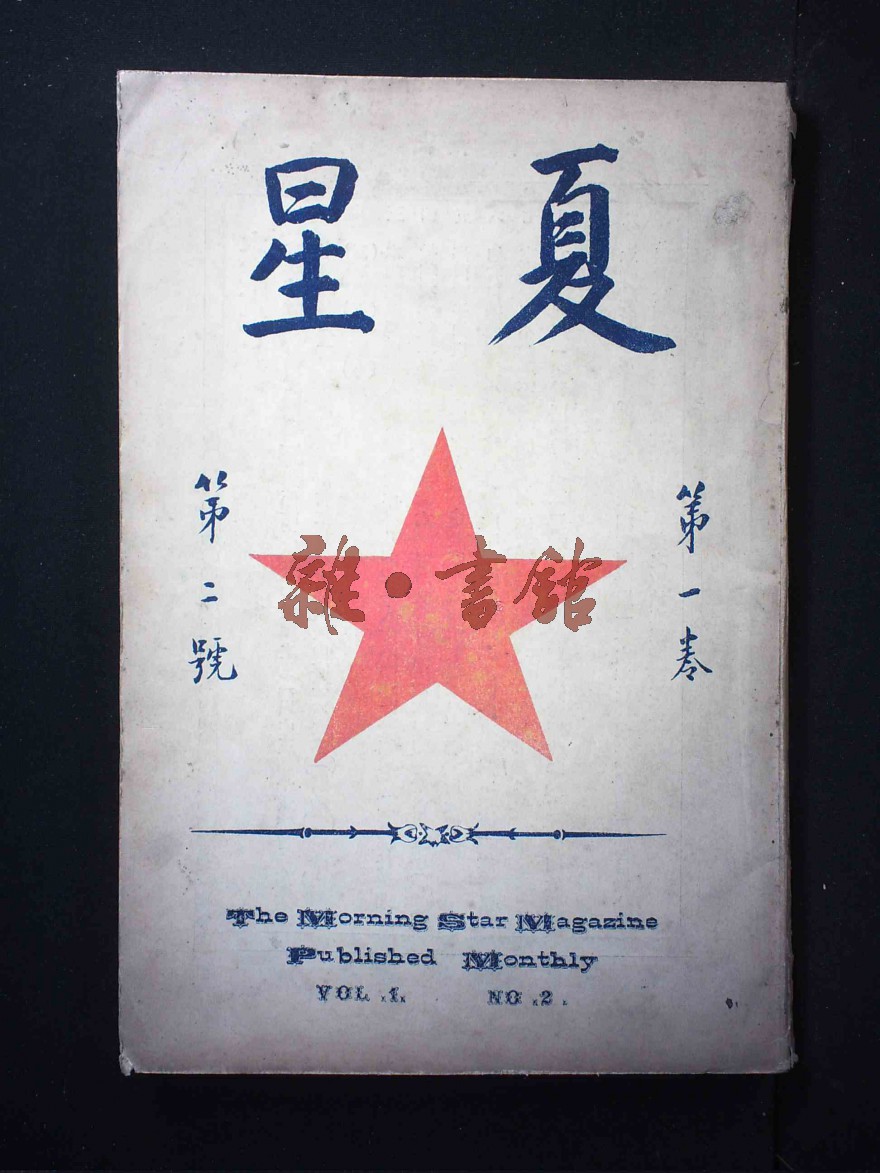 夏星
第一卷
第二號
雜·書館
The Morning Star Magazine
Published Monthly
VOL.1. NO.2.